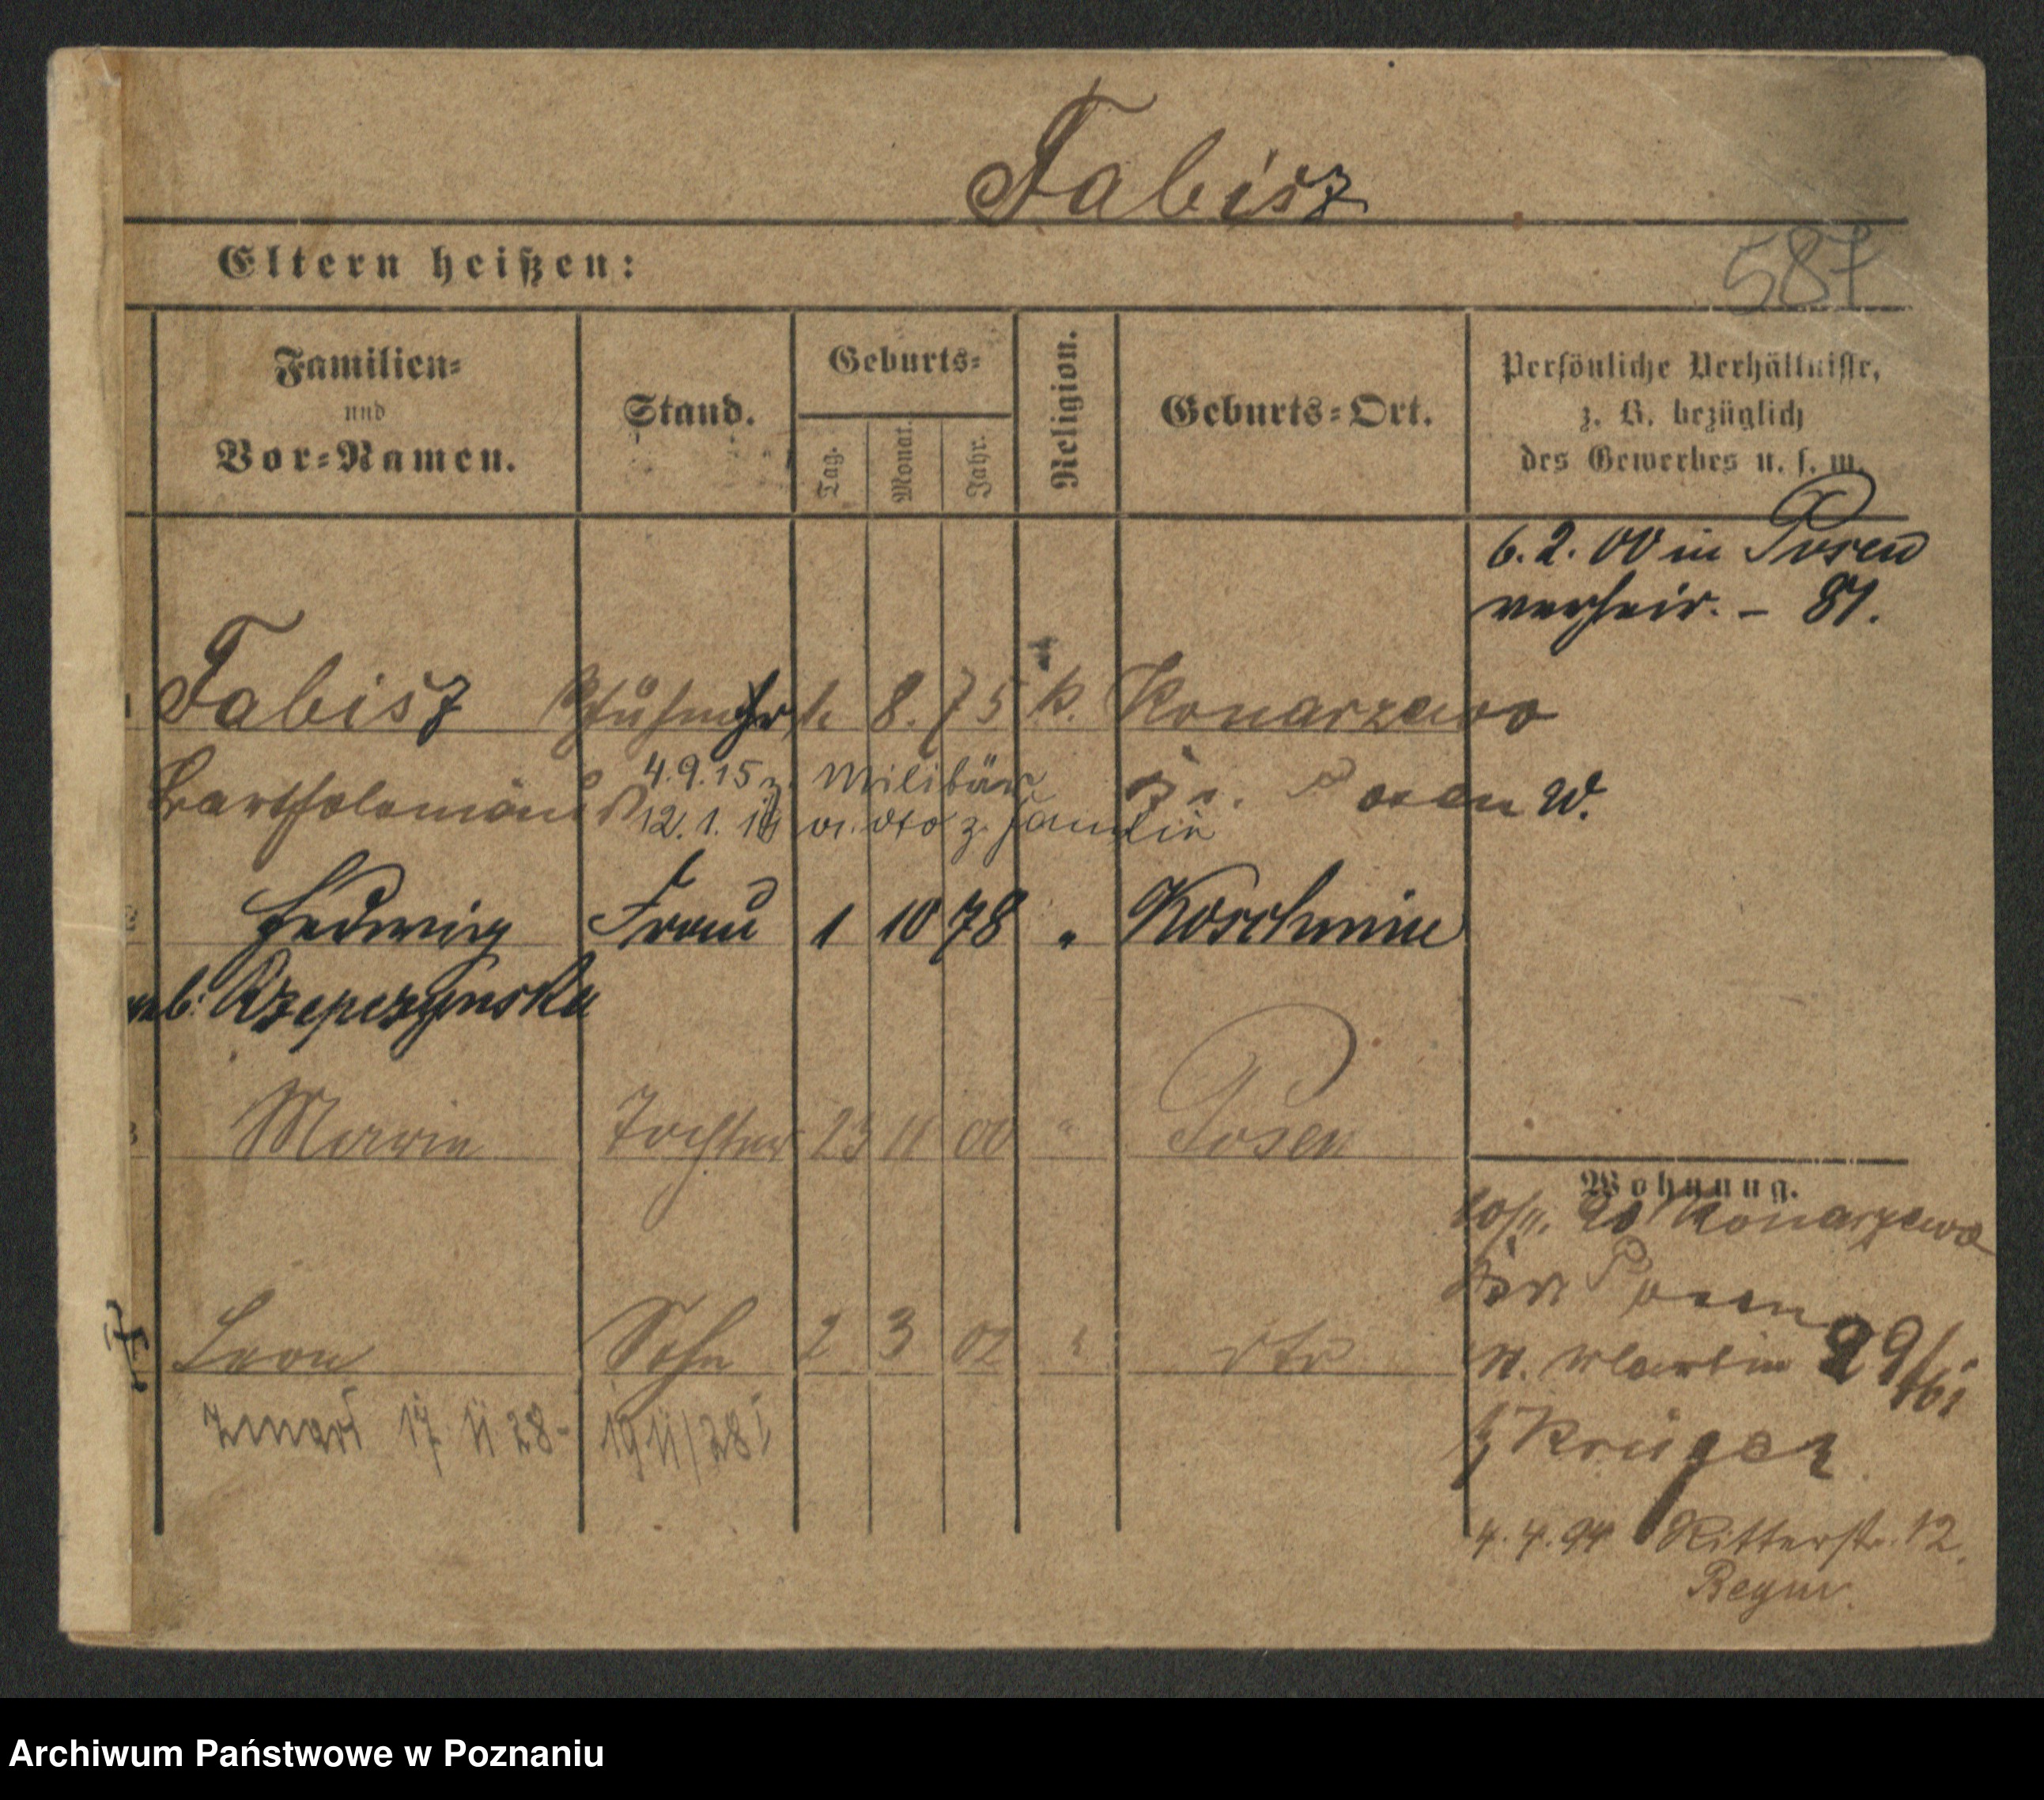 Tabisz
Eltern heißen:
587
Familien-
und
Vor-Namen.
Stand.
Geburts-
Tag.
Monat.
Jahr.
Religion.
Geburts-Ort.
Persönliche Verhältnisse,
z. B. bezüglich
des Gewerbes u. s. w.
6. 2. 00 in Posen
verheir. - 81.
Tabisz 8. 75 k. Konarzewo
Bartholomäus Kr. Posen W.
4. 9. 15 z. Militär
12. 1. v. dto z. Familie
2 Hedwig Frau 1 10 78 " Koschmin
geb. Rzepczynska
3 Marie Tochter 23 11 00 " Posen
Leon Sohn 2 3 02 " dto
zmarł 17 11 28 - 19 11/28
Wohnung.
Konarzewo
Kr Posen
St. Martin 29
b/ Krüger
4. 4. 94 Ritterstr. 12.